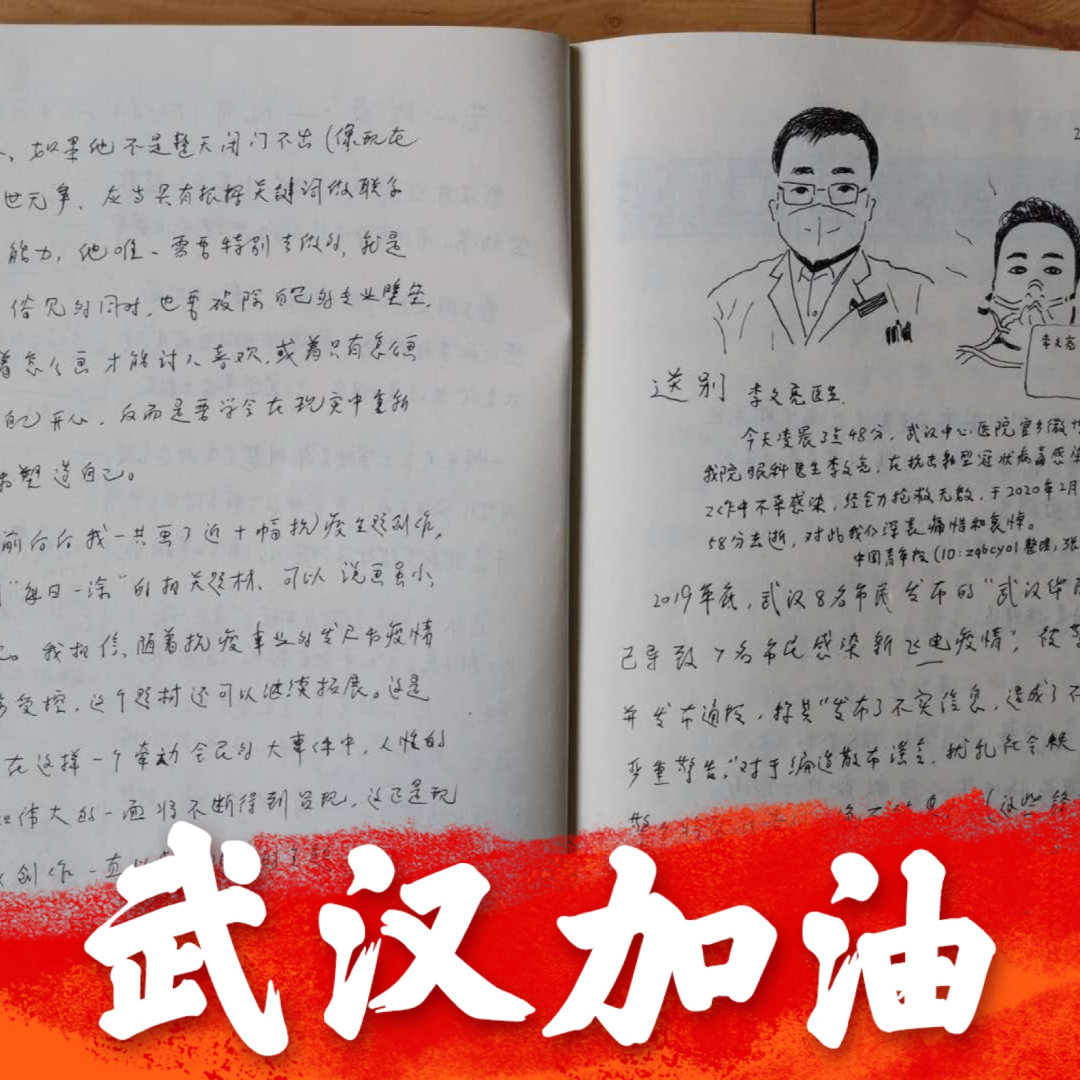 如果他不是整天闭门不出(像现在
世无争，应当具有根据关键词做联系
能力，他唯一需要特别去做的，就是
俗见的同时，也要破除自己的专业壁垒，
着怎么画才能讨人喜欢，或着只有怎么画
自己开心，反而是要学会在现实中重新
塑造自己。
前后后我一共画了近十幅抗疫主题创作，
"每日一涂"的相关题材，可以说画虽小，
。我相信，随着抗疫事业的发展与疫情
受控，这个题材还可以继续拓展。这是
在这样一个牵动全民的大事件中，人性的
伟大的一面将不断得到呈现，这正是现
创作一直以
2
李文亮
送别 李文亮医生.
今天凌晨3点48分，武汉中心医院官方微博
我院眼科医生李文亮，在抗击新型冠状病毒感染
工作中不幸感染，经全力抢救无效，于2020年2月
58分去逝，对此我们深表痛惜和哀悼。
中国青年报(ID:zqbcyol整理，张
2019年底，武汉8名市民发布的"武汉华南
已导致7名市民感染新飞电疫情"，被警
并发布通报，称其"发布了不实信息，造成了不
严重警告。"对于编造散布谣言，扰乱社会秩
(这些
武汉加油